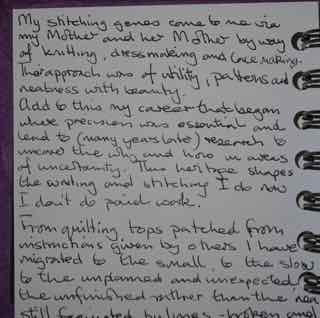 My stitching genes come to me via
my Mother and her Mother by way
of knitting, dressmaking and lace making.
Their approach was of utility, patterns and
neatness with beauty.
Add to this my career that began
where precision was essential and
lead to (many years late) research to
uncover the why and how in areas
of uncertainty. This heritage shapes
the writing and stitching I do now
I don't do paid work.
From quilting tops patched from
instructions given by others I have
migrated to the small, to the slow
to the unplanned and unexpected,
the unfinished rather than the
still by lines - broken and